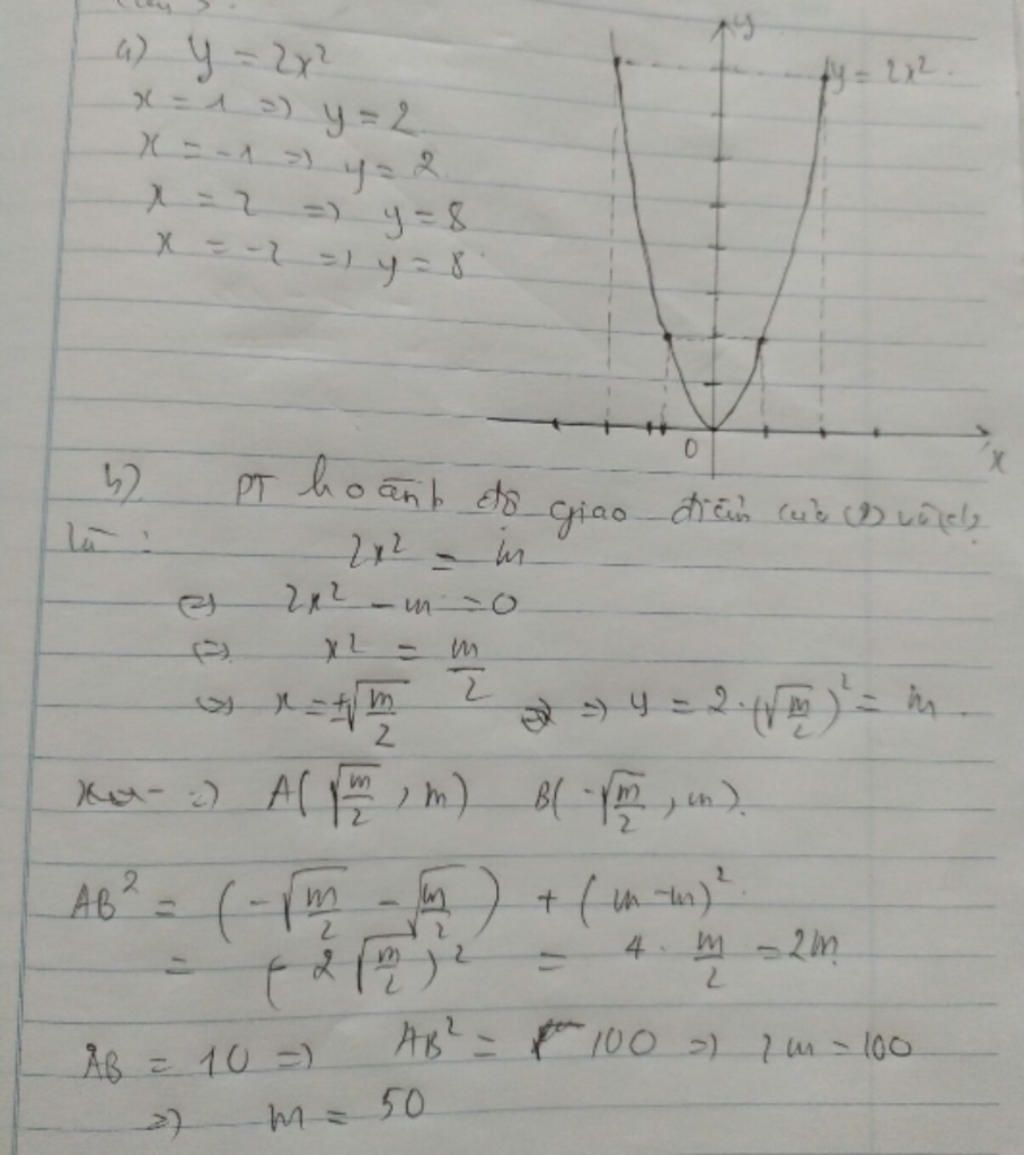 a) y = 2x²
x = 1 => y = 2
x = -1 => y = 2
x = 2 => y = 8
x = -2 => y = 8
y
y = 2x²
0
x
b) PT hoành độ giao điểm của (P) và (d)
là :
2x² = m
<=> 2x² - m = 0
<=> x² = m/2
<=> x = ±√(m/2) => y = 2.(√(m/2))² = m
=> A(√(m/2), m) B(-√(m/2), m).
AB² = (-√(m/2) - √(m/2)) + (m-m)²
= (-2√(m/2))² = 4. m/2 = 2m
AB = 10 => AB² = 100 => 2m = 100
=> m = 50